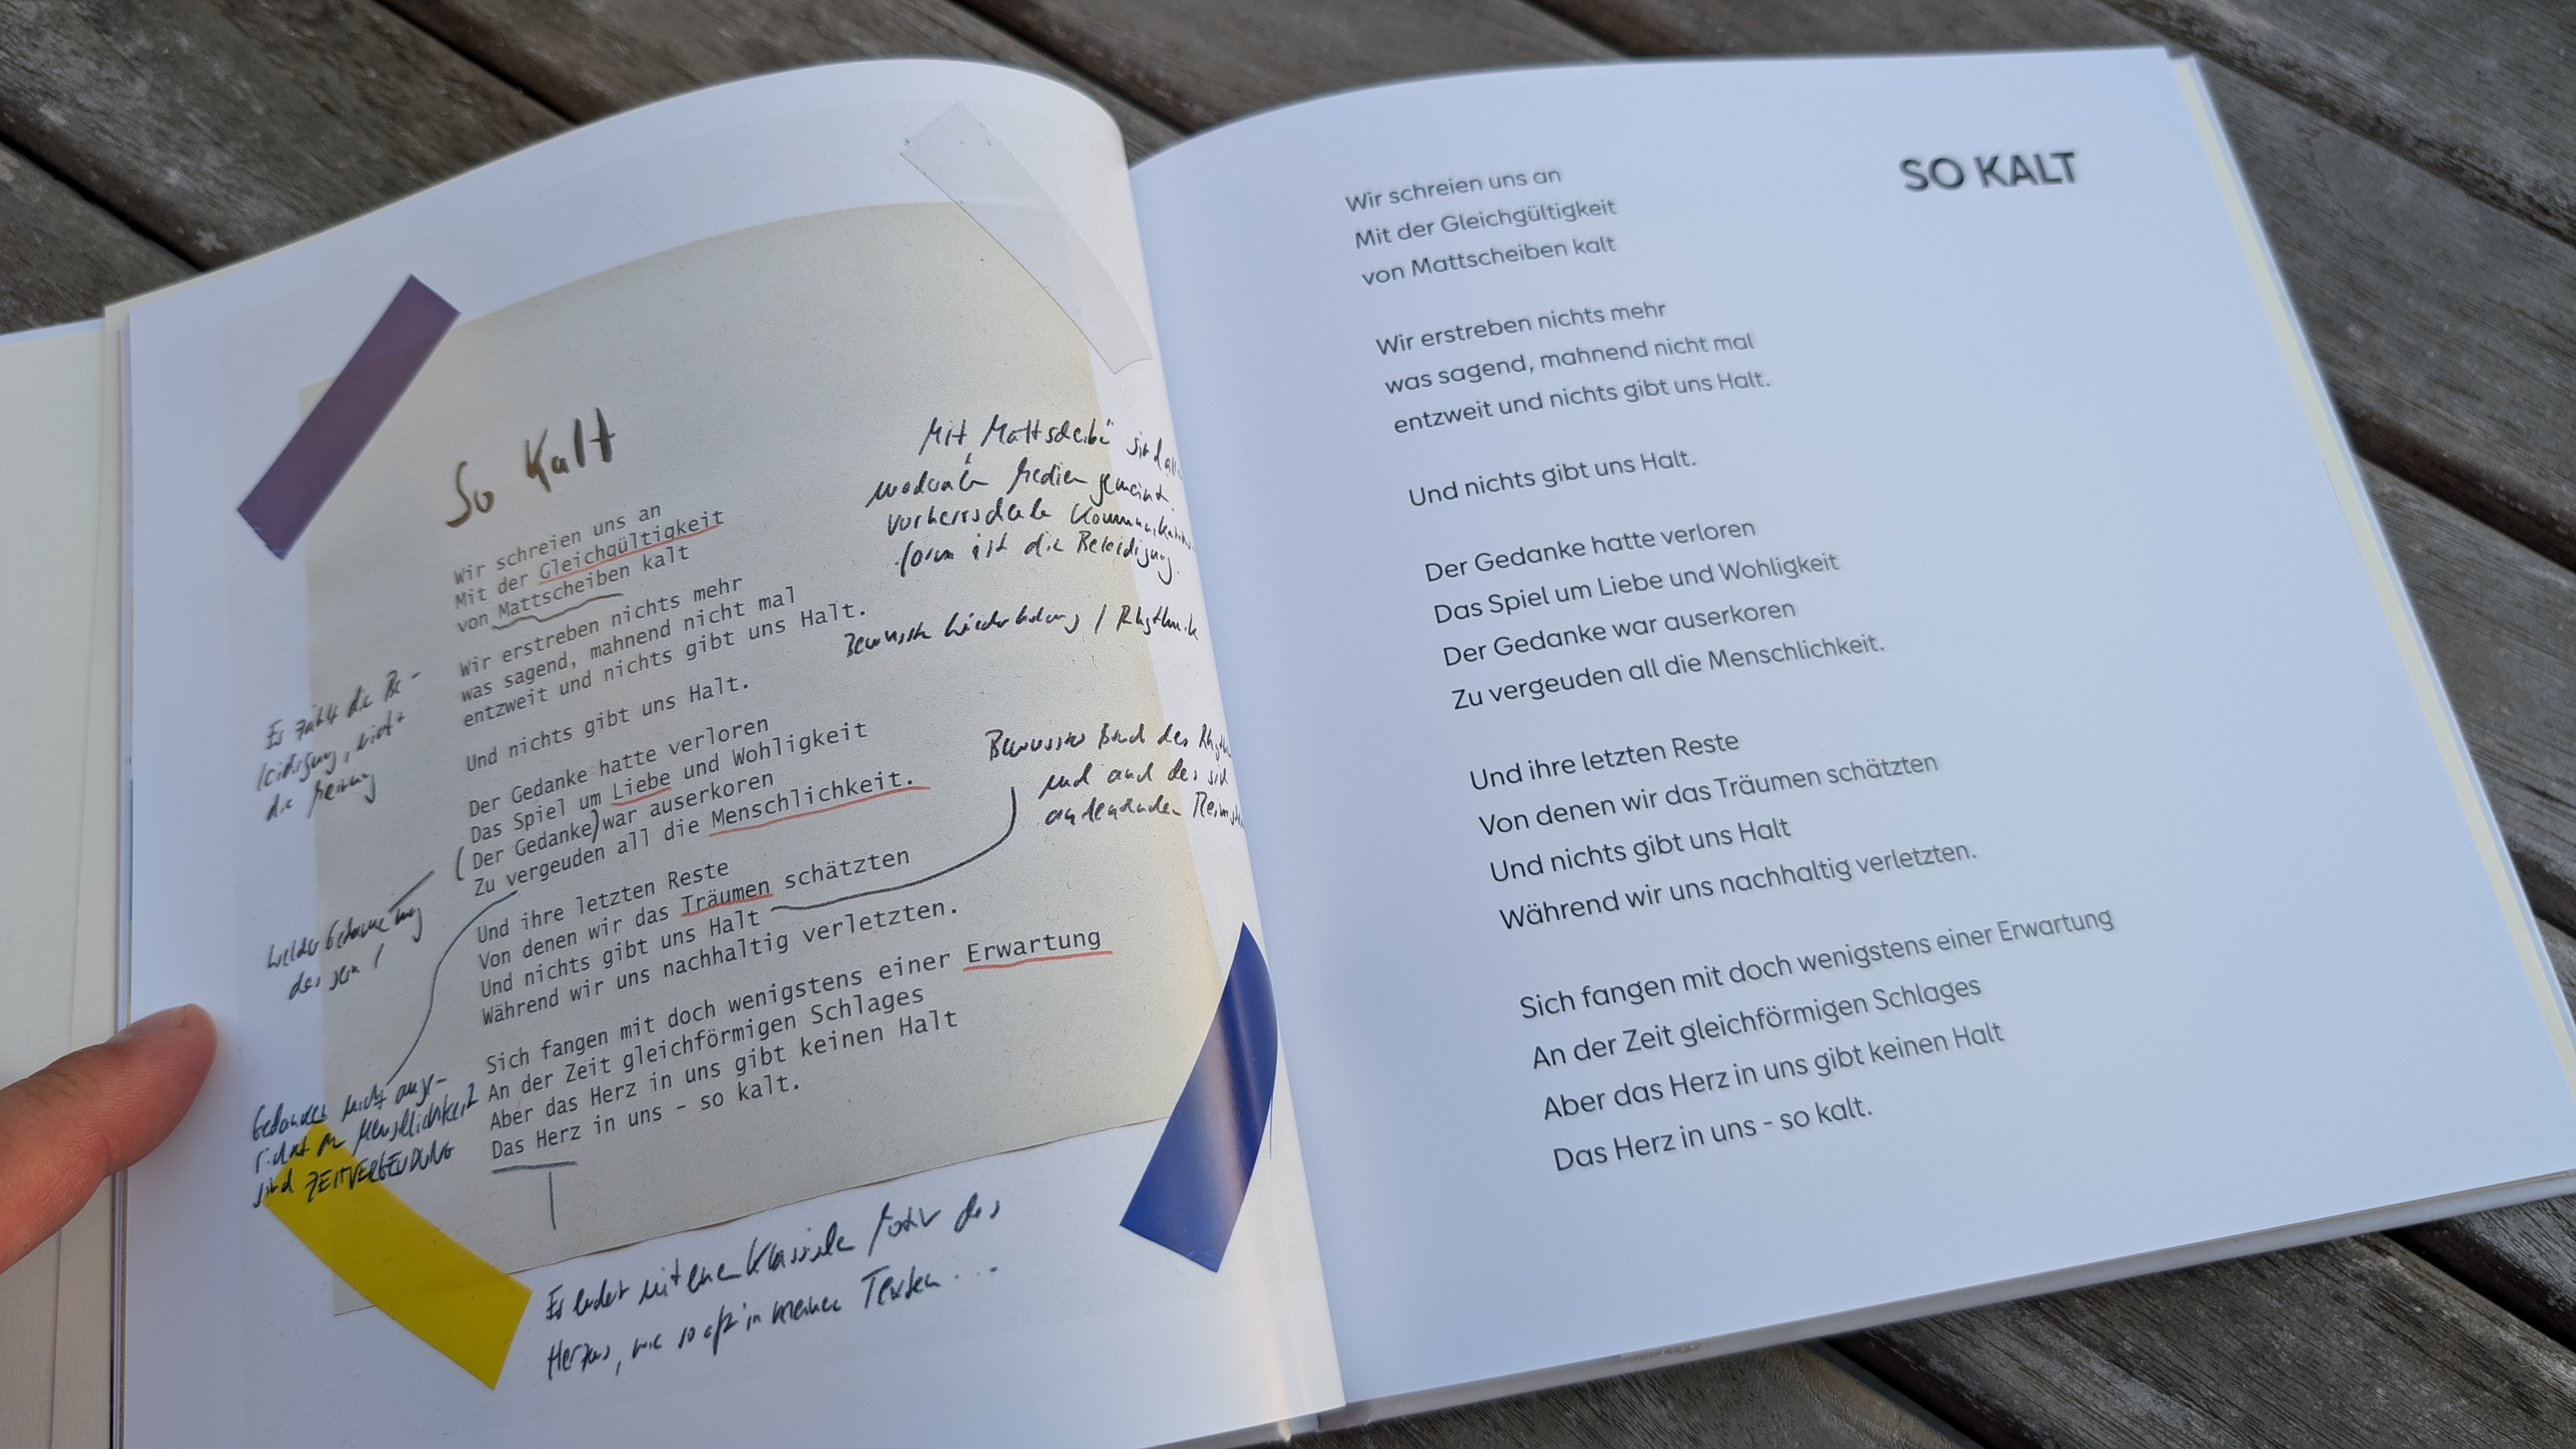 So Kalt
Wir schreien uns an
Mit der Gleichgültigkeit
von Mattscheiben kalt
Wir erstreben nichts mehr
was sagend, mahnend nicht mal
entzweit und nichts gibt uns Halt.
Und nichts gibt uns Halt.
Der Gedanke hatte verloren
Das Spiel um Liebe und Wohligkeit
(Der Gedanke) war auserkoren
Zu vergeuden all die Menschlichkeit.
Und ihre letzten Reste
Von denen wir das Träumen schätzten
Und nichts gibt uns Halt
Während wir uns nachhaltig verletzten.
Sich fangen mit doch wenigstens einer Erwartung
An der Zeit gleichförmigen Schlages
Aber das Herz in uns gibt keinen Halt
Das Herz in uns - so kalt.
Mit "Mattscheibe" sind
moderne Medien gemeint.
Vorherrschende Kommunikations-
form ist die Beleidigung.
Bewusste Wiederholung / Rhythmik
Bewusster Bruch des
und auch des sich
andeutenden
Es zählt die Be-
leidigung, nicht
die Meinung
Welcher Gedanke mag
das sein?
Gedanken nicht ausge-
richtet an Menschlichkeit
sind ZEITVERGEUDUNG
Es endet mit eine Klassische Motiv des
Herzens, wie so oft in meinen Texten...
SO KALT
Wir schreien uns an
Mit der Gleichgültigkeit
von Mattscheiben kalt
Wir erstreben nichts mehr
was sagend, mahnend nicht mal
entzweit und nichts gibt uns Halt.
Und nichts gibt uns Halt.
Der Gedanke hatte verloren
Das Spiel um Liebe und Wohligkeit
Der Gedanke war auserkoren
Zu vergeuden all die Menschlichkeit.
Und ihre letzten Reste
Von denen wir das Träumen schätzten
Und nichts gibt uns Halt
Während wir uns nachhaltig verletzten.
Sich fangen mit doch wenigstens einer Erwartung
An der Zeit gleichförmigen Schlages
Aber das Herz in uns gibt keinen Halt
Das Herz in uns - so kalt.